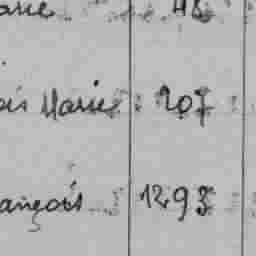 arie 48
ois Marie 207
ançois 1293